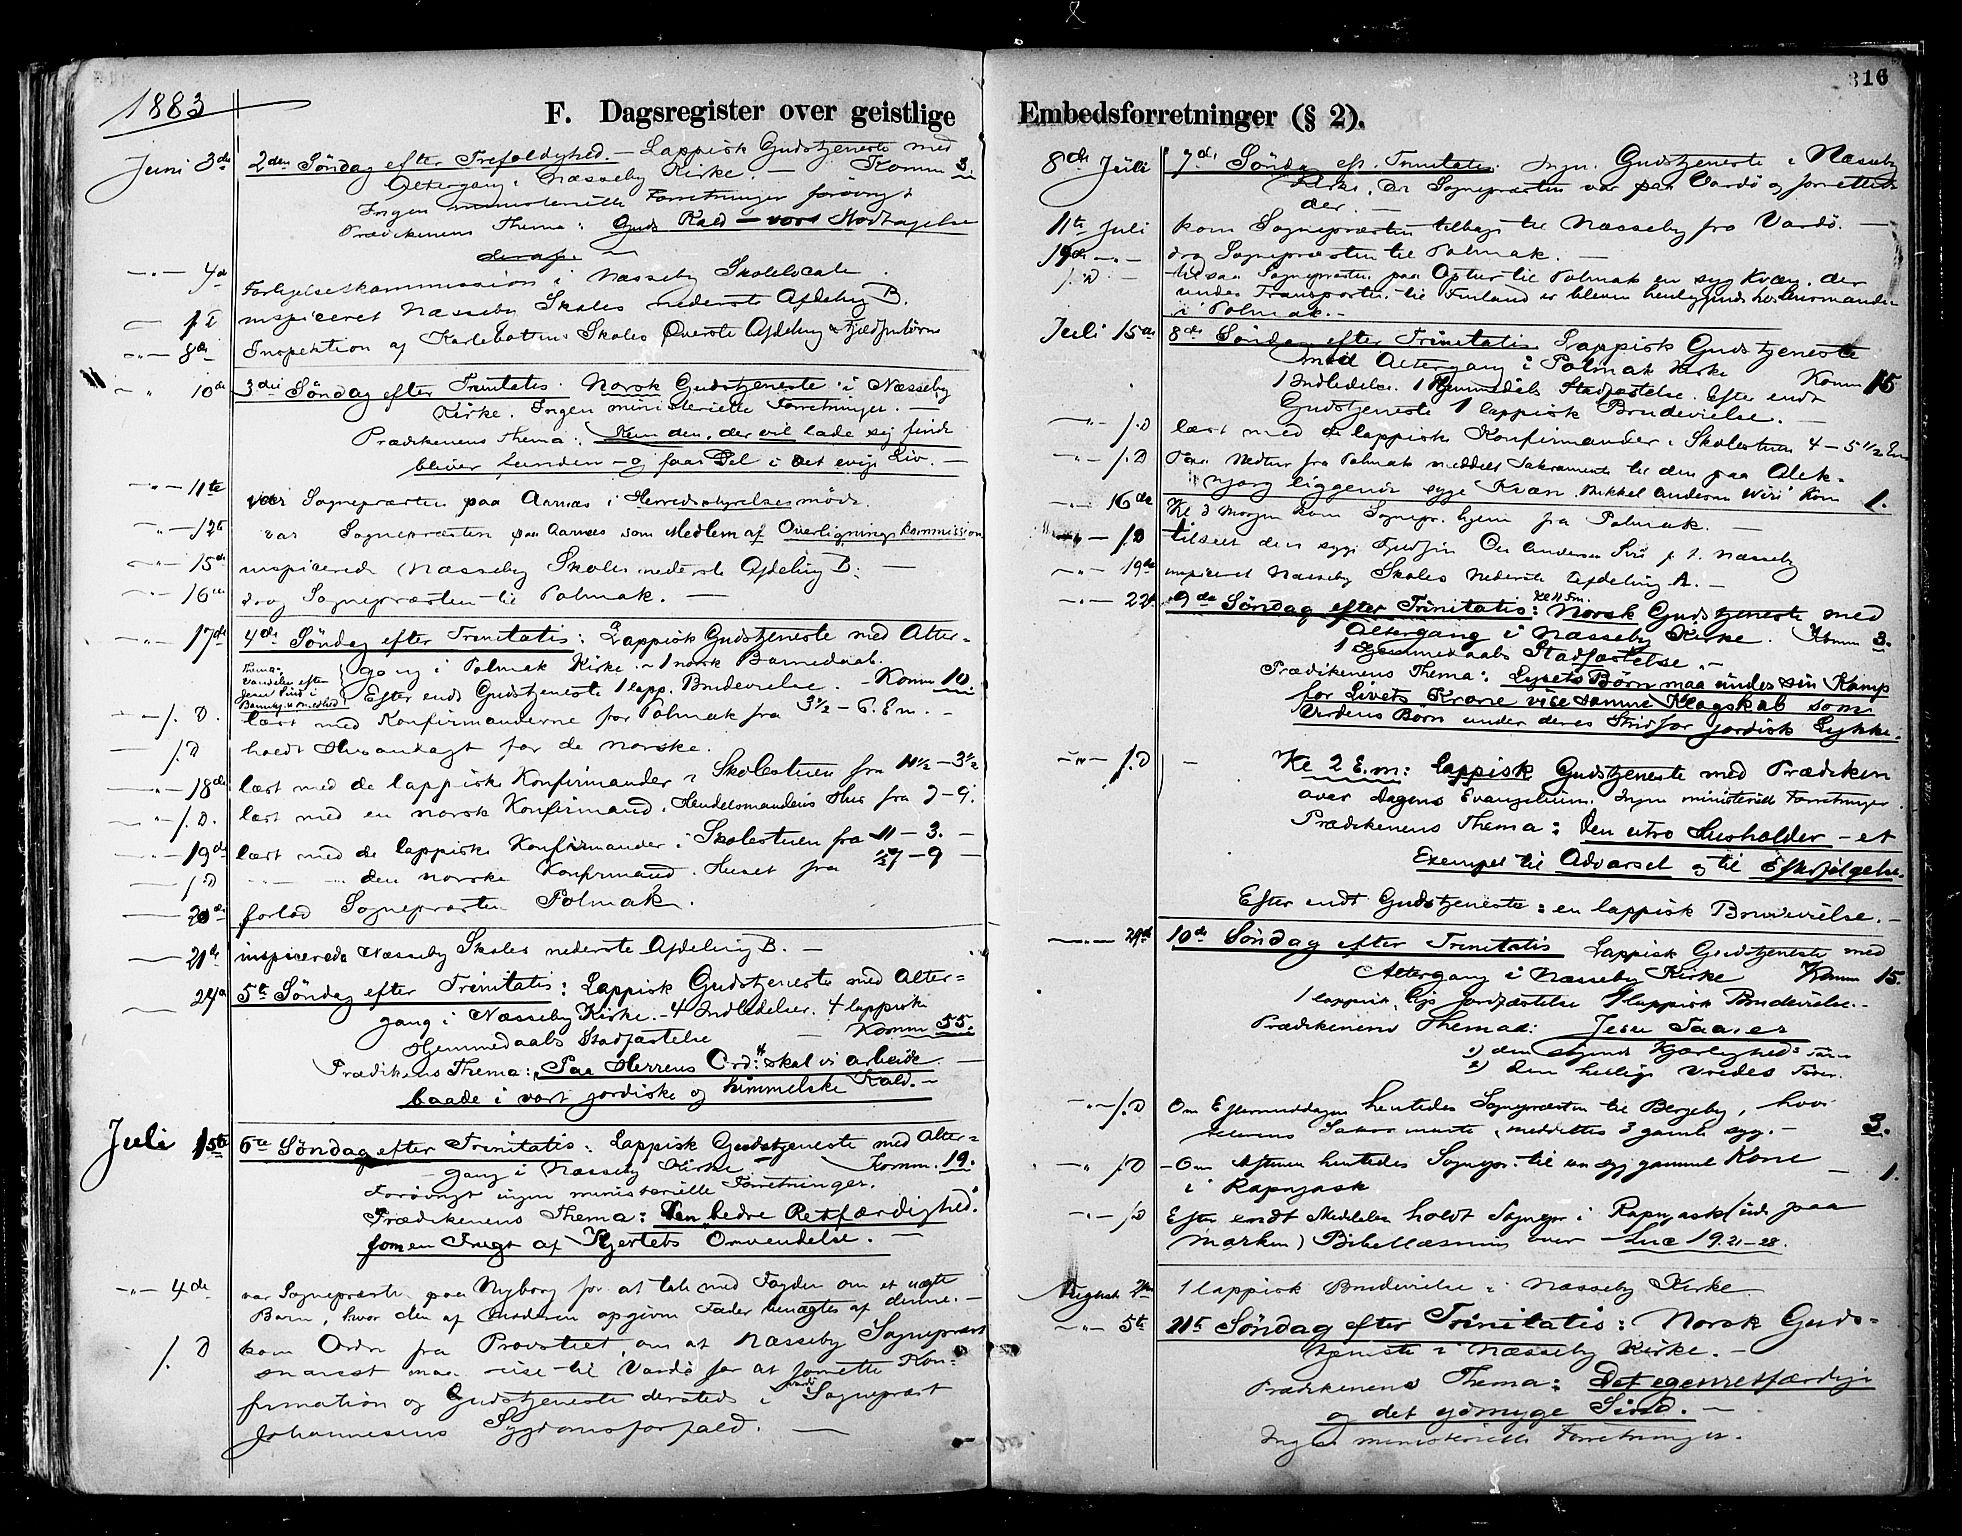 316
1883
F. Dagsregister over geistlige
Juni 3die 2den Søndag efter Trefoldighed. – Lappisk Gudstjeneste med
Altergang i Næsseby Kirke. – Komm 3.
Ingen ministerielle Forretninger forøvrigt
Prædikenens Thema: Guds Kald – vor Modtagelse
deraf. –
–"– 4de Forligelseskommission i Næsseby Skolelocale.
– s. D inspiceret Næsseby Skoles nederste Afdeling B.
–"– 8de Inspektion af Karlebotn Skoles Øverste Afdeling
–"– 10de 3die Søndag efter Trinitatis. Norsk Gudstjeneste i Næsseby
Kirke. Ingen ministerielle Forretninger. –
Prædikenens Thema: Kun den, der vil lade sig finde
bliver funden – og faar Del i det evige Liv. –
–"– 11te var Sognepræsten paa Aarnæs i Herredsstyrelsesmøde.
–"– 12te var Sognepræsten paa Aarnæs som Medlem af Overligningskommission
–"– 15de inspicerede Næsseby Skoles nederste Afdeling B. –
–"– 16de drog Sognepræsten til Polmak. –
–"– 17de 4de Søndag efter Trinitatis: Lappisk Gudstjeneste med Alter=
gang i Polmak Kirke. – 1 norsk Barnedaab.
Thema:
Efter endt Gudstjeneste 1 lapp. Brudevielse. – Komm 10
–"– s. D. læst med Konfirmanderne for Polmak fra 3½ – 6. Em. –
– s. D holdt Husandagt for de norske.
–"– 18de læst med de lappiske Konfirmander i Skolestuen fra 11½ – 3½
–"– s. D. læst med en norsk Konfirmand i Handelsmandens Hus fra 7–9.
–"– 19de læst med de lappiske Konfirmander i Skolestuen fra 11 – 3. –
– s. D –"– den norske Konfirmand i Huset fra ½7 – 9 –
– 20de forlod Sognepræsten Polmak.
– 21de inspicerede Næsseby Skoles nederste Afdeling B. –
– 24de 5te Søndag efter Trinitatis: Lappisk Gudstjeneste med Alter=
gang i Næsseby Kirke. – 4 Indledelser. 4 lappiske
Hjemmedaabs Stadfæstelse – Komm 55.
Prædikens Thema: "Paa Herrens Ord" skal vi arbeide
baade i vort jordiske og himmelske Kald. –
Juli 1ste 6te Søndag efter Trinitatis: Lappisk Gudstjeneste med Alter=
gang i Næsseby Kirke. Komm. 19.
Forøvrigt ingen ministerielle Forretninger.
Prædikenens Thema: Den "bedre Retfærdighed"
som en Frugt af Hjertets Omvendelse. –
–"– 4de var Sognepræsten paa Nyborg for at tale med Fogden om et uægte
Barn, hvor den af Moderen opgivne Fader benægtes af denne. –
s. D kom Ordre fra Provstiet, om at Næsseby Sognepræst
snarest maa reise til Vardø for at forrette Kon=
firmation og Gudstjeneste dersteds i Vardø Sognepræst
Johannesens Sygdomsforfald. –
Embedsforretninger (§ 2).
8de Juli 7de Søndag eft. Trinitatis. Ingen Gudstjeneste i Næsseby
Kirke, da Sognepræsten var paa Vardø og forrettede
der. –
11te Juli kom Sognepræsten tilbage til Næsseby fra Vardø. –
–"– drog Sognepræsten til Polmak. –
s. D. tilsaa Sognepræsten paa Opturen til Polmak en syg Kvæn, der
under Transporten til Finland er bleven henliggende hos Lensmanden
i Polmak. –
Juli 15de 8de Søndag efter Trinitatis. Lappisk Gudstjeneste
med Altergang i Polmak Kirke Komm 15
1 Indledelse. 1 Hjemmedaabs Stadfæstelse. Efter endt
Gudstjeneste 1 lappisk Brudevielse. –
–"– s. D læst med de lappiske Konfirmander i Skolestuen 4 – 5½ Em
–"– s. D Paa Nedtur fra Polmak meddelt Sakramente til den paa Alek-
njarg liggende syge Kvæn Mikkel Komm 1.
–"– 16de Kl 3 Morgen kom Sognepr. hjem fra Polmak. –
–"– s. D tilseet den syge
–"– 19de inspiceret Næsseby Skoles Nederste Afdeling A. –
–"– 22de 9de Søndag efter Trinitatis: Kl 11 Fm. Norsk Gudstjeneste med
Altergang i Næsseby Kirke. Komm 3.
1 Hjemmedaabs Stadfæstelse. –
Prædikenens Thema: Lysets Børn maa under sin Kamp
for Livets Krone vise samme Klogskab som
Verdens Børn under deres Strid for jordisk Lykke.
–"– s. D – Kl 2 E.m: lappisk Gudstjeneste med Prædiken
over Dagens Evangelium. Ingen ministerielle Forretninger.
Prædikenens Thema: Den utro Husholder – et
Exempel til Advarsel og til Efterfølgelse.
Efter endt Gudstjeneste: en lappisk Brudevielse. –
–"– 29de 10de Søndag efter Trinitatis Lappisk Gudstjeneste med
Altergang i Næsseby Kirke Komm 15.
1 lappisk Lig Jordfæstelse 1 lappisk Brudevielse. –
Prædikenens Thema: Jesu Taarer
1) den søgende Kjærligheds Taarer
2) den hellige Vredes Taarer.
–"– s. D Om Eftermiddagen hentedes Sognepræsten til Bergeby, hvor
Alterens Sakramente meddeltes 3 gamle syge. – 3.
–"– s. D – Om Aftenen hentedes Sognepr. til en syg gammel Kone
i Rapnjask – 1.
–"– s. D Efter endt Meddelse holdt Sognepr i Rapnjask (inde paa
Marken) Bibellæsning over Luc 19. 21–28.
August 1 lappisk Brudevielse i Næsseby Kirke
–"– 5te 11te Søndag efter Trinitatis: Norsk Guds-
tjeneste i Næsseby Kirke. –
Prædikenens Thema: Det egenretfærdige
og det ydmyge Sind. –
Ingen ministerielle Forretninger.